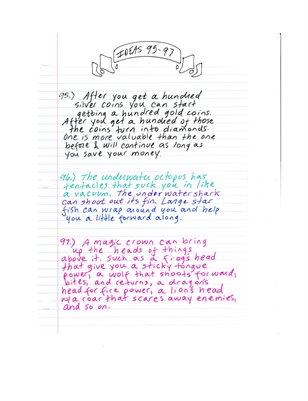 IDEAS 95-97
95.) After you get a hundred
silver coins you can start
getting a hundred gold coins.
After you get a hundred of those
the coins turn into diamonds.
One is more valuable than the one
before & will continue as long as
you save your money.
96.) The underwater octopus has
tentacles that suck you in like
a vacuum. The underwater shark
can shoot out its fin. Large star
fish can wrap around you and help
you a little forward along.
97.) A magic crown can bring
up the heads of things
above it. Such as a frogs head
that give you a sticky tongue
power, a wolf that shoots forward,
bites, and returns, a dragon's
head for fire power, a lion's head
w/a roar that scares away enemies,
and so on.